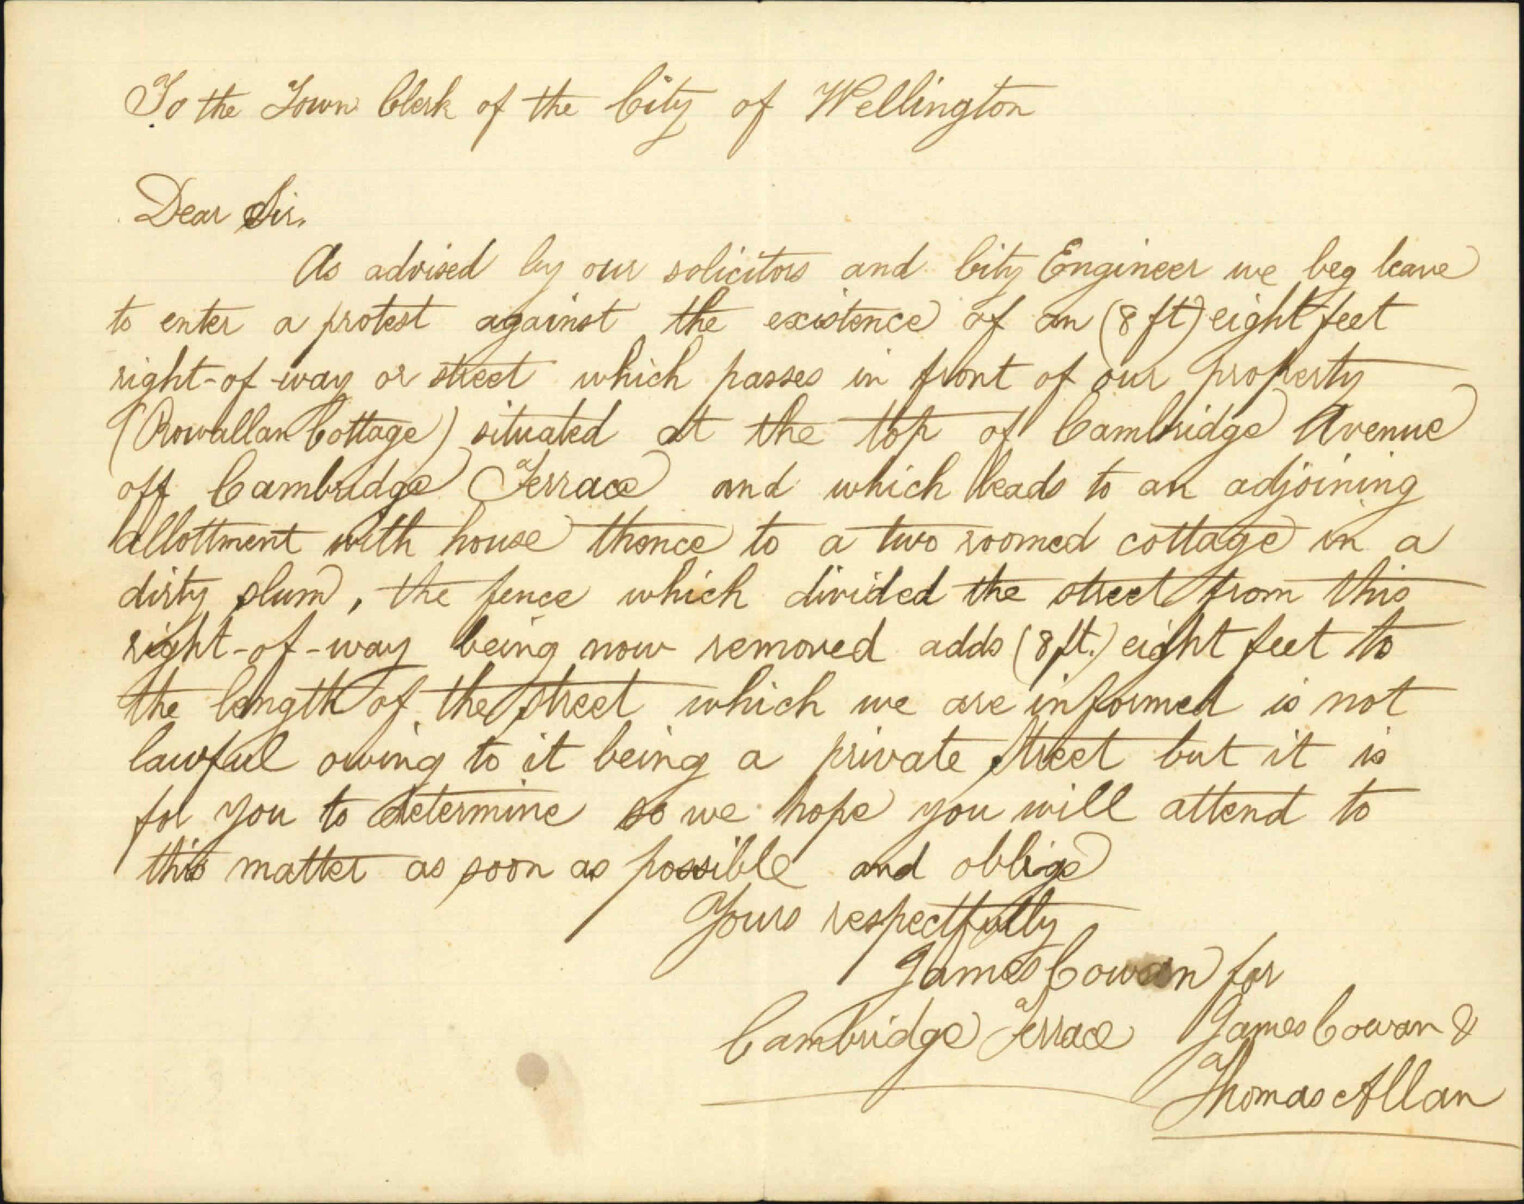 To the Town Clerk of the City of Wellington
Dear Sir.
As advised by our solicitors and City Engineer we beg leave
to enter a protest against the existence of an (8 ft) eight feet
right-of-way or street which passes in front of our property
(Rowallan Cottage) situated at the top of Cambridge Avenue
off Cambridge Terrace and which leads to an adjoining
allottment with house thence to a two roomed cottage in a
dirty slum, the fence which divided the street from this
right-of-way being now removed adds (8 ft.) eight feet to
the length of the street which we are informed is not
lawful owing to it being a private street but it is
for you to determine so we hope you will attend to
this matter as soon as possible and oblige
Yours respectfully
James Cowan for
Cambridge Terrace James Cowan &
Thomas Allan